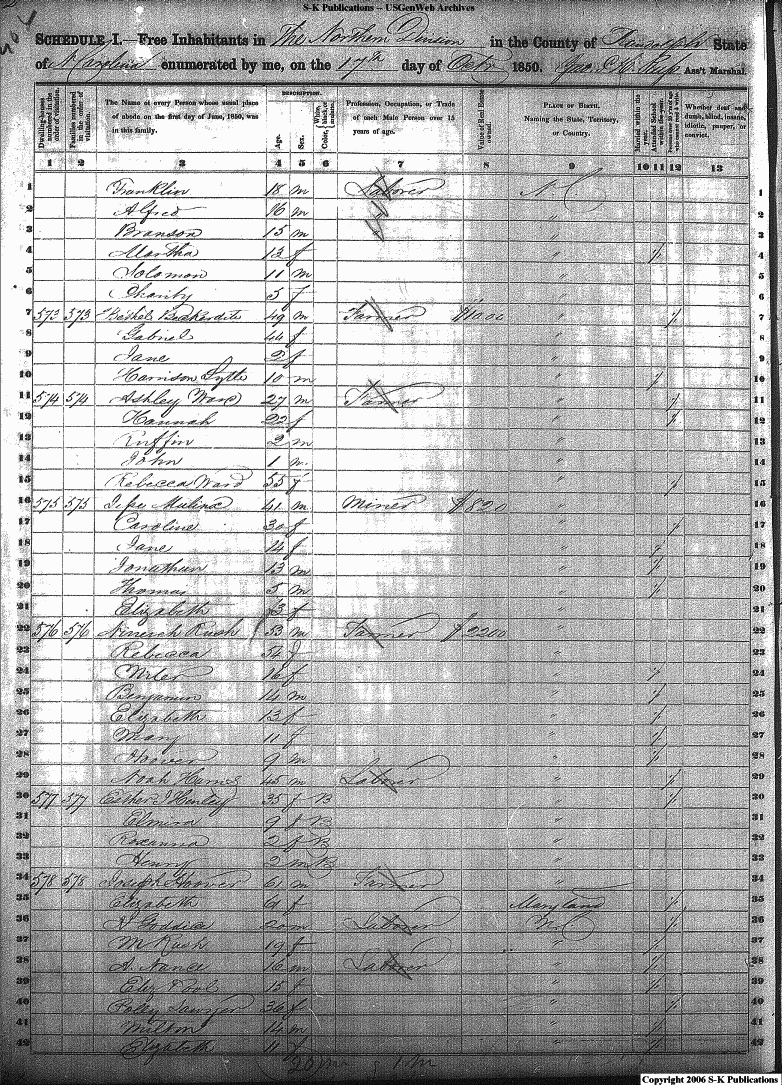 S-K Publications -- USGenWeb Archives
SCHEDULE I.—Free Inhabitants in The Northern Division in the County of Randolph State
of N Carolina enumerated by me, on the 17th day of Octr 1850. Ass't Marshal.
Dwelling-houses numbered in the order of visitation.
Families numbered in the order of visitation.
The Name of every Person whose usual place of abode on the first day of June, 1850, was in this family.
DESCRIPTION.
Age.
Sex.
Color, White, black, or mulatto.
Profession, Occupation, or Trade of each Male Person over 15 years of age.
Value of Real Estate owned.
PLACE OF BIRTH. Naming the State, Territory, or Country.
Married within the year.
Attended School within the year.
Persons over 20 y'rs of age who cannot read & write.
Whether deaf and dumb, blind, insane, idiotic, pauper, or convict.
1 2 3 4 5 6 7 8 9 10 11 12 13
1 Franklin 18 m Laborer N. C 1
2 Alfred 16 m " 2
3 Branson 15 m " 3
4 Martha 13 f " / 4
5 Solomon 11 m " 5
6 Charity 5 f " 6
7 573 573 Bethel 49 m Farmer " / 7
8 Gabriel 44 f " 8
9 Jane 2 f " 9
10 Harrison Lytle 10 m " / 10
11 574 574 Ashley Ward 27 m Farmer " / 11
12 Hannah 22 f " / 12
13 Ruffin 2 m " 13
14 John 1 m " 14
15 Rebecca Ward 55 f " / 15
16 575 575 41 m Miner $820 " 16
17 Caroline 30 f " / 17
18 Jane 14 f " / 18
19 Jonathan 13 m " / 19
20 Thomas 5 m " / 20
21 Elizabeth 3 f " 21
22 576 576 Nineveh Rush 53 m Farmer $2200 " 22
23 Rebecca 54 f " 23
24 16 f " / 24
25 Benjamin 14 m " / 25
26 Elizabeth 13 f " / 26
27 Mary 11 f " / 27
28 Hoover 9 m " / 28
29 Noah 45 m Laborer " / 29
30 577 577 Esther J Henley 35 f B " / 30
31 Elmira 9 f B " 31
32 Roxanna 2 f B " 32
33 Henry 2 m B " 33
34 578 578 Joseph Hoover 61 m Farmer " 34
35 Elizabeth 61 f Maryland / 35
36 Laborer N. C / 36
37 M Rush 19 f " / 37
38 A. Nance 16 m Laborer " / 38
39 15 f " / 39
40 Polly Sawyer 36 f " / 40
41 Milton 14 m " / 41
42 Elizabeth 11 f " / 42
Copyright 2006 S-K Publications